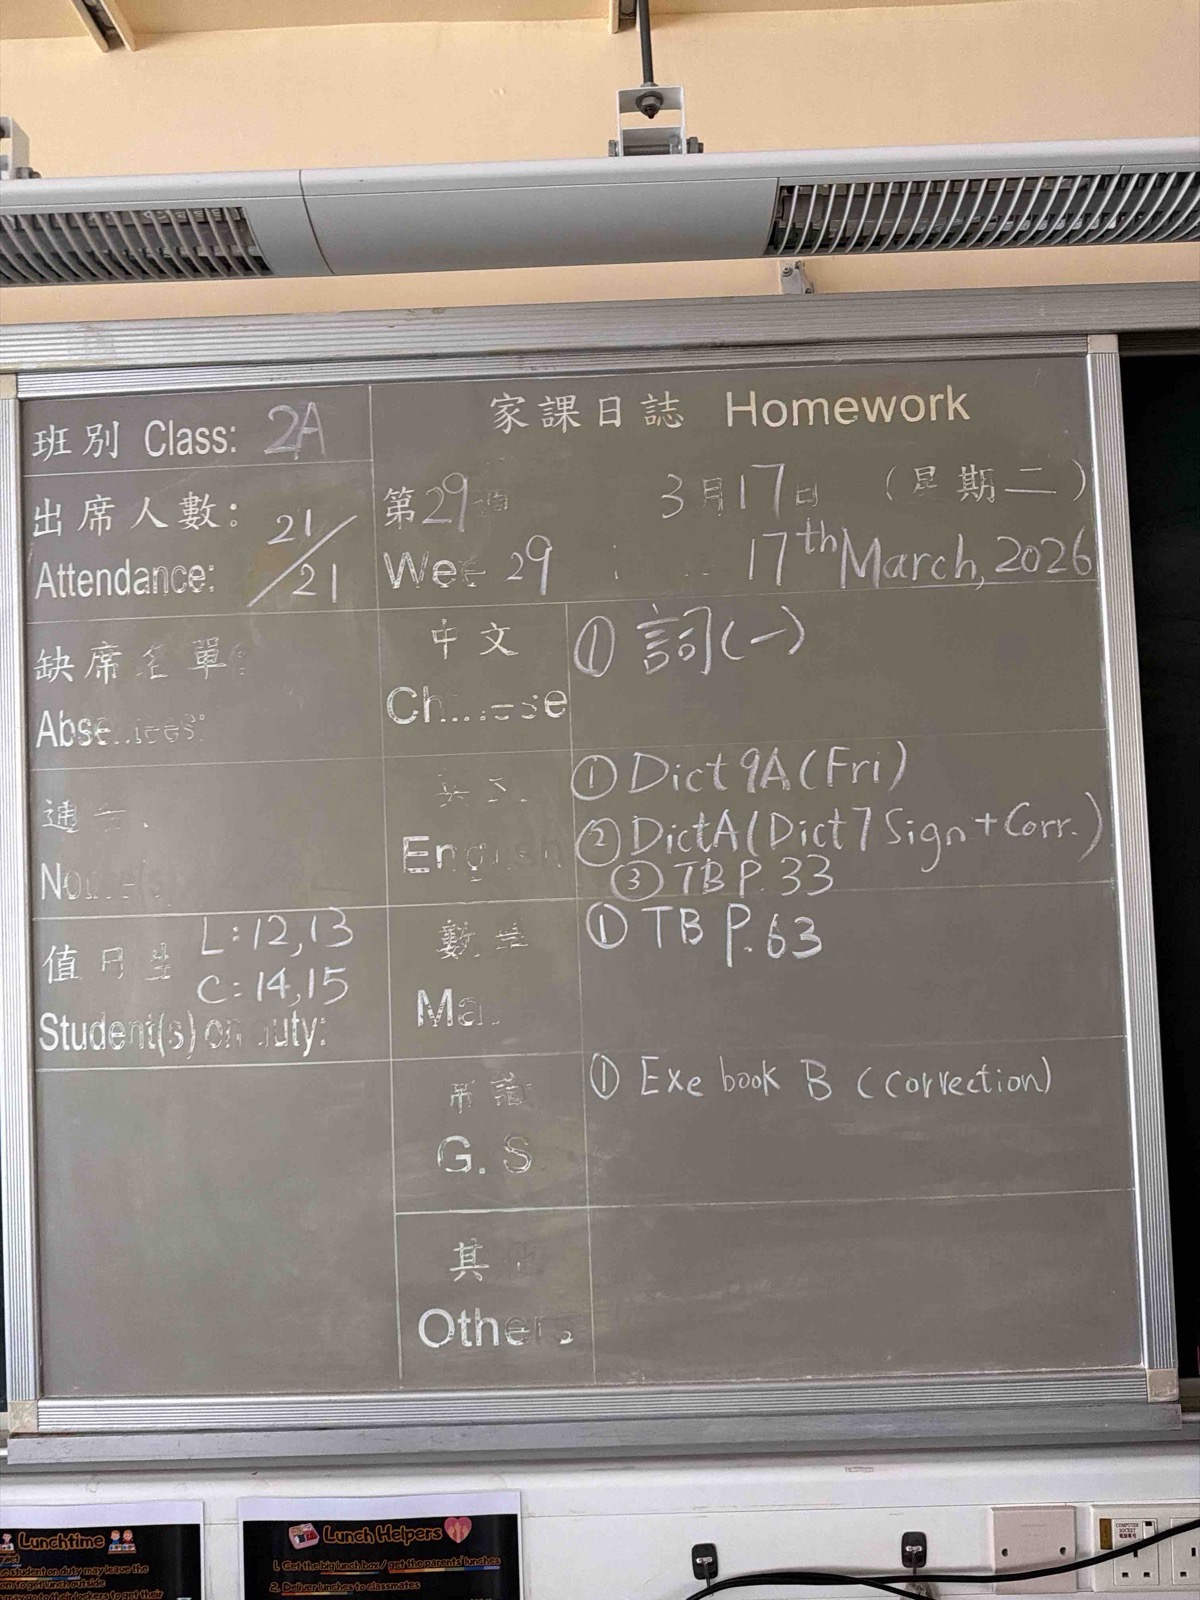 家課日誌 Homework
班別 Class: 2A
出席人數:
Attendance: 21/21
第29週 3月17日 (星期二)
Week 29 17th March, 2026
缺席名單:
Absentees:
中文
Chinese
① 詞(一)
English
① Dict 9A (Fri)
② Dict A (Dict 7 Sign + Corr.)
③ TB P. 33
值日生 L: 12, 13
C: 14, 15
Student(s) on duty:
數學
Ma
① TB P. 63
常識
G. S
① Exe book B (correction)
其他
Others
Lunchtime
student on duty may leave the
to get lunch outside
Lunch Helpers
1. Get the big lunch box / get the parents' lunches
2. Deliver lunches to classmates
COMPUTER
SOCKET